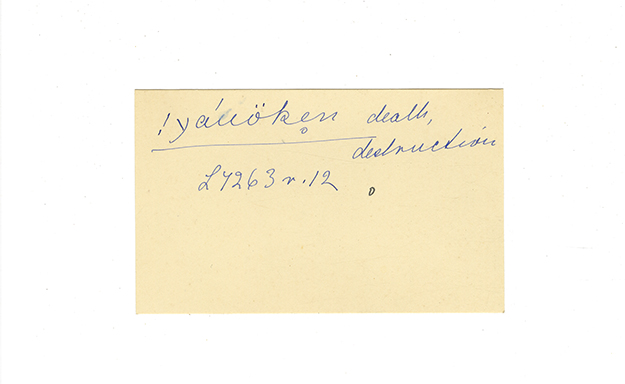 !yáuöke̥n death,
destruction
L 4263 r. 12 D